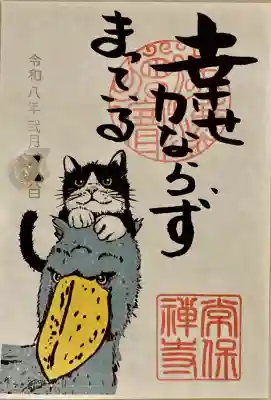 幸せ
かならず
まってる
令和八年弐月
日
常保
禅寺